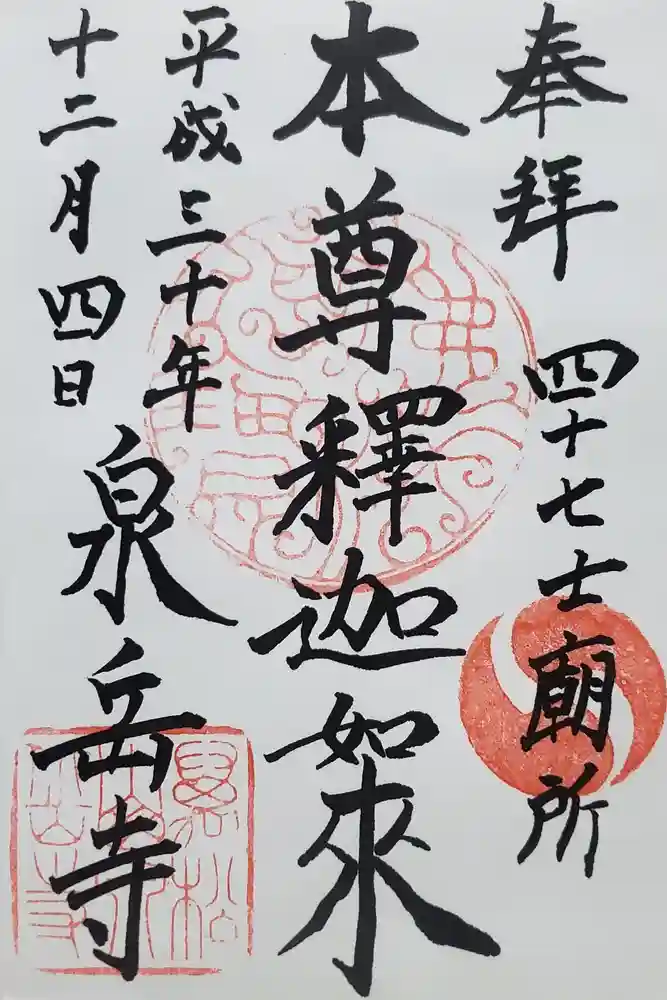 奉拝 四十七士廟所
本尊釋迦如來
平成三十年
十二月四日
泉岳寺